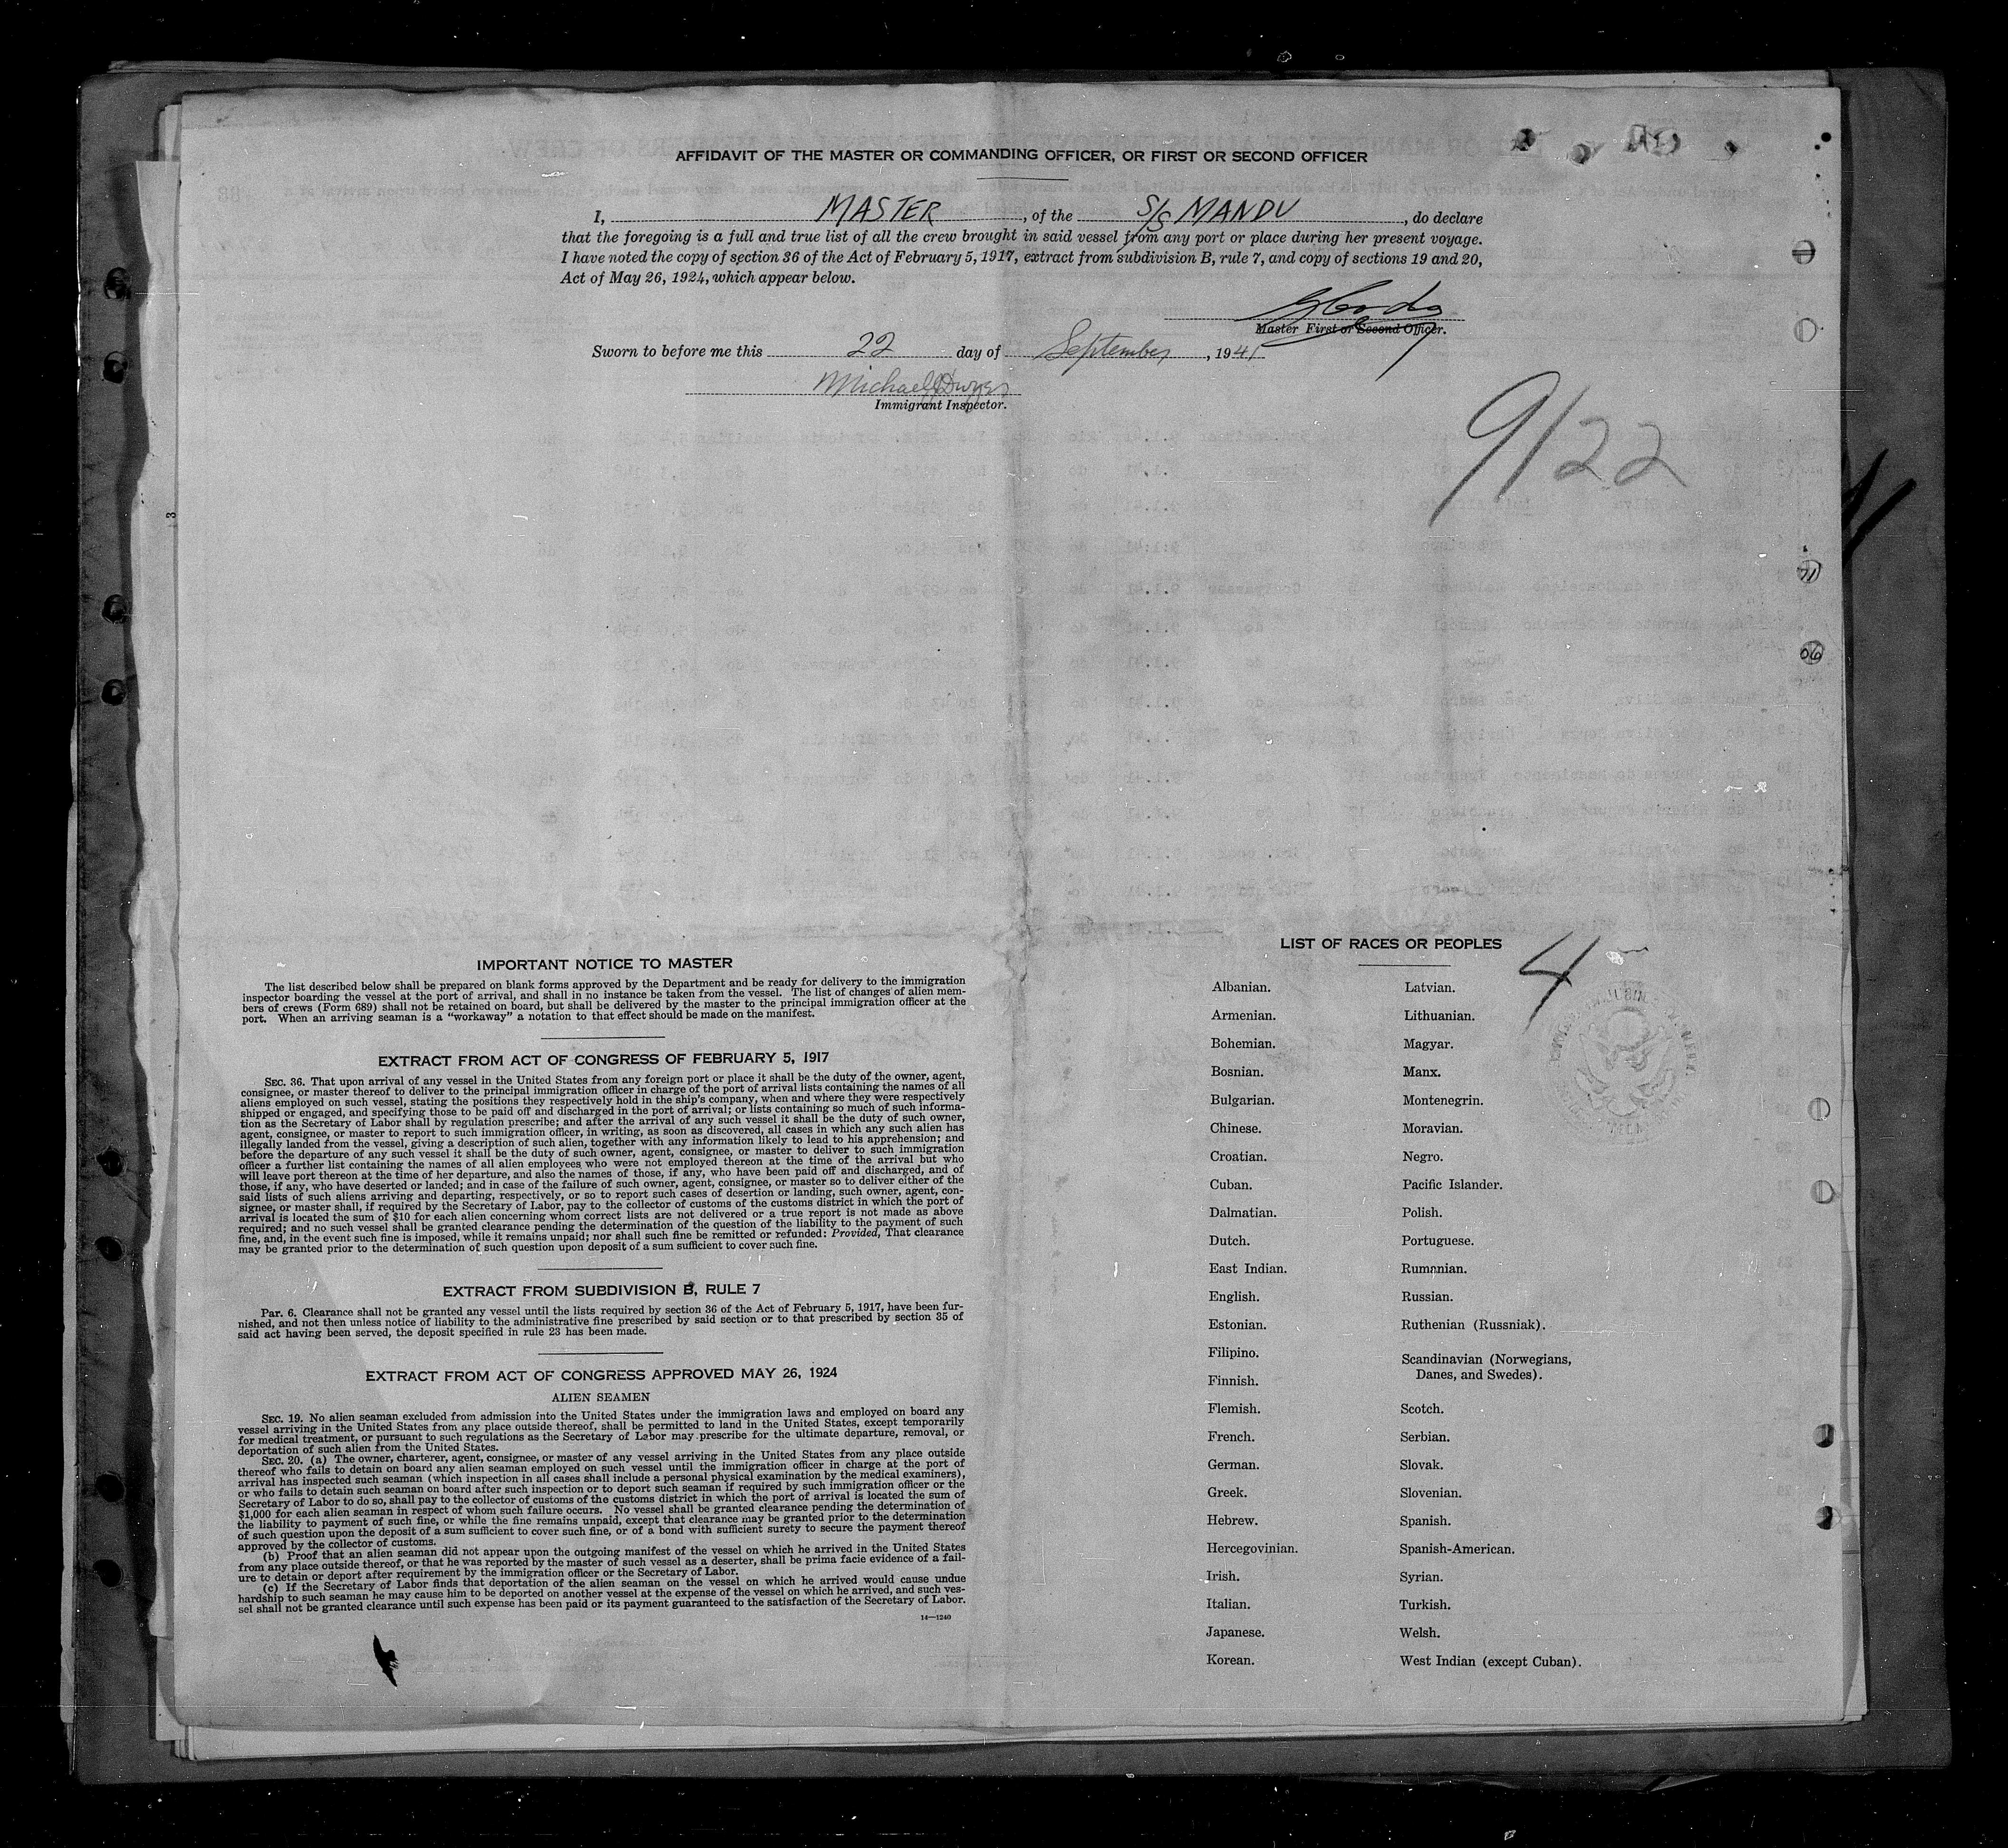 AFFIDAVIT OF THE MASTER OR COMMANDING OFFICER, OR FIRST OR SECOND OFFICER
I, MASTER, of the S/S MANDU, do declare
that the foregoing is a full and true list of all the crew brought in said vessel from any port or place during her present voyage.
I have noted the copy of section 36 of the Act of February 5, 1917, extract from subdivision B, rule 7, and copy of sections 19 and 20,
Act of May 26, 1924, which appear below.
Master First or Second Officer.
Sworn to before me this 22 day of September, 1941
Michael J Dwyer
Immigrant Inspector.
9/22
IMPORTANT NOTICE TO MASTER
The list described below shall be prepared on blank forms approved by the Department and be ready for delivery to the immigration
inspector boarding the vessel at the port of arrival, and shall in no instance be taken from the vessel. The list of changes of alien mem-
bers of crews (Form 689) shall not be retained on board, but shall be delivered by the master to the principal immigration officer at the
port. When an arriving seaman is a "workaway" a notation to that effect should be made on the manifest.
EXTRACT FROM ACT OF CONGRESS OF FEBRUARY 5, 1917
SEC. 36. That upon arrival of any vessel in the United States from any foreign port or place it shall be the duty of the owner, agent,
consignee, or master thereof to deliver to the principal immigration officer in charge of the port of arrival lists containing the names of all
aliens employed on such vessel, stating the positions they respectively hold in the ship's company, when and where they were respectively
shipped or engaged, and specifying those to be paid off and discharged in the port of arrival; or lists containing so much of such informa-
tion as the Secretary of Labor shall by regulation prescribe; and after the arrival of any such vessel it shall be the duty of such owner,
agent, consignee, or master to report to such immigration officer, in writing, as soon as discovered, all cases in which any such alien has
illegally landed from the vessel, giving a description of such alien, together with any information likely to lead to his apprehension; and
before the departure of any such vessel it shall be the duty of such owner, agent, consignee, or master to deliver to such immigration
officer a further list containing the names of all alien employees who were not employed thereon at the time of the arrival but who
will leave port thereon at the time of her departure, and also the names of those, if any, who have been paid off and discharged, and of
those, if any, who have deserted or landed; and in case of the failure of such owner, agent, consignee, or master so to deliver either of the
said lists of such aliens arriving and departing, respectively, or so to report such cases of desertion or landing, such owner, agent, con-
signee, or master shall, if required by the Secretary of Labor, pay to the collector of customs of the customs district in which the port of
arrival is located the sum of $10 for each alien concerning whom correct lists are not delivered or a true report is not made as above
required; and no such vessel shall be granted clearance pending the determination of the question of the liability to the payment of such
fine, and, in the event such fine is imposed, while it remains unpaid; nor shall such fine be remitted or refunded: Provided, That clearance
may be granted prior to the determination of such question upon deposit of a sum sufficient to cover such fine.
EXTRACT FROM SUBDIVISION B, RULE 7
Par. 6. Clearance shall not be granted any vessel until the lists required by section 36 of the Act of February 5, 1917, have been fur-
nished, and not then unless notice of liability to the administrative fine prescribed by said section or to that prescribed by section 35 of
said act having been served, the deposit specified in rule 23 has been made.
EXTRACT FROM ACT OF CONGRESS APPROVED MAY 26, 1924
ALIEN SEAMEN
SEC. 19. No alien seaman excluded from admission into the United States under the immigration laws and employed on board any
vessel arriving in the United States from any place outside thereof, shall be permitted to land in the United States, except temporarily
for medical treatment, or pursuant to such regulations as the Secretary of Labor may prescribe for the ultimate departure, removal, or
deportation of such alien from the United States.
SEC. 20. (a) The owner, charterer, agent, consignee, or master of any vessel arriving in the United States from any place outside
thereof who fails to detain on board any alien seaman employed on such vessel until the immigration officer in charge at the port of
arrival has inspected such seaman (which inspection in all cases shall include a personal physical examination by the medical examiners),
or who fails to detain such seaman on board after such inspection or to deport such seaman if required by such immigration officer or the
Secretary of Labor to do so, shall pay to the collector of customs of the customs district in which the port of arrival is located the sum of
$1,000 for each alien seaman in respect of whom such failure occurs. No vessel shall be granted clearance pending the determination of
the liability to payment of such fine, or while the fine remains unpaid, except that clearance may be granted prior to the determination
of such question upon the deposit of a sum sufficient to cover such fine, or of a bond with sufficient surety to secure the payment thereof
approved by the collector of customs.
(b) Proof that an alien seaman did not appear upon the outgoing manifest of the vessel on which he arrived in the United States
from any place outside thereof, or that he was reported by the master of such vessel as a deserter, shall be prima facie evidence of a fail-
ure to detain or deport after requirement by the immigration officer or the Secretary of Labor.
(c) If the Secretary of Labor finds that deportation of the alien seaman on the vessel on which he arrived would cause undue
hardship to such seaman he may cause him to be deported on another vessel at the expense of the vessel on which he arrived, and such ves-
sel shall not be granted clearance until such expense has been paid or its payment guaranteed to the satisfaction of the Secretary of Labor.
14—1240
LIST OF RACES OR PEOPLES
4
Albanian.
Armenian.
Bohemian.
Bosnian.
Bulgarian.
Chinese.
Croatian.
Cuban.
Dalmatian.
Dutch.
East Indian.
English.
Estonian.
Filipino.
Finnish.
Flemish.
French.
German.
Greek.
Hebrew.
Hercegovinian.
Irish.
Italian.
Japanese.
Korean.
Latvian.
Lithuanian.
Magyar.
Manx.
Montenegrin.
Moravian.
Negro.
Pacific Islander.
Polish.
Portuguese.
Rumanian.
Russian.
Ruthenian (Russniak).
Scandinavian (Norwegians,
Danes, and Swedes).
Scotch.
Serbian.
Slovak.
Slovenian.
Spanish.
Spanish-American.
Syrian.
Turkish.
Welsh.
West Indian (except Cuban).